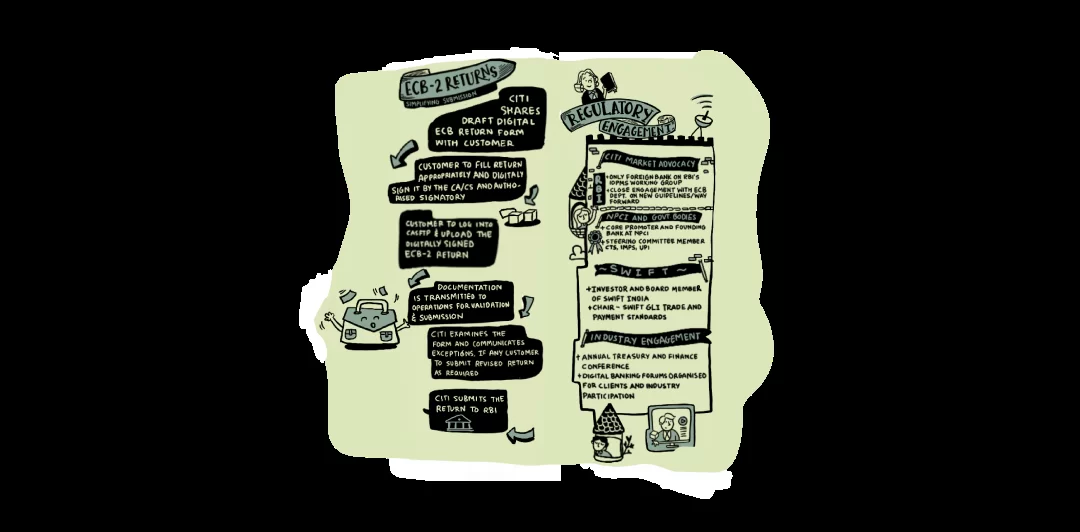 ECB-2 RETURNS
SIMPLIFYING SUBMISSION
CITI
SHARES
DRAFT DIGITAL
ECB RETURN FORM
WITH CUSTOMER
CUSTOMER TO FILL RETURN
APPROPRIATELY AND DIGITALY
SIGN IT BY THE CA/CS AND AUTHO-
RISED SIGNATORY
CUSTOMER TO LOG INTO
& UPLOAD THE
DIGITALLY SIGNED
ECB-2 RETURN
DOCUMENTATION
IS TRANSMITTED TO
OPERATIONS FOR VALIDATION
& SUBMISSION
CITI EXAMINES THE
FORM AND COMMUNICATES
EXCEPTIONS, IF ANY CUSTOMER
TO SUBMIT REVISED RETURN
AS REQUIRED
CITI SUBMITS THE
RETURN TO RBI
REGULATORY
ENGAGEMENT
CITI MARKET ADVOCACY
RBI
+ONLY FOREIGN BANK ON RBI'S
IDPMS WORKING GROUP
+CLOSE ENGAGEMENT WITH ECB
DEPT. ON NEW GUIDELINES/WAY
FORWARD
NPCI AND GOVT BODIES
+ CORE PROMOTER AND FOUNDING
BANK AT NPCI
+STEERING COMMITTEE MEMBER
CTS, IMPS, UPI
~SWIFT~
+INVESTOR AND BOARD MEMBER
OF SWIFT INDIA
+CHAIR - SWIFT GLI TRADE AND
PAYMENT STANDARDS
INDUSTRY ENGAGEMENT
+ ANNUAL TREASURY AND FINANCE
CONFERENCE
+DIGITAL BANKING FORUMS ORGANISED
FOR CLIENTS AND INDUSTRY
PARTICIPATION